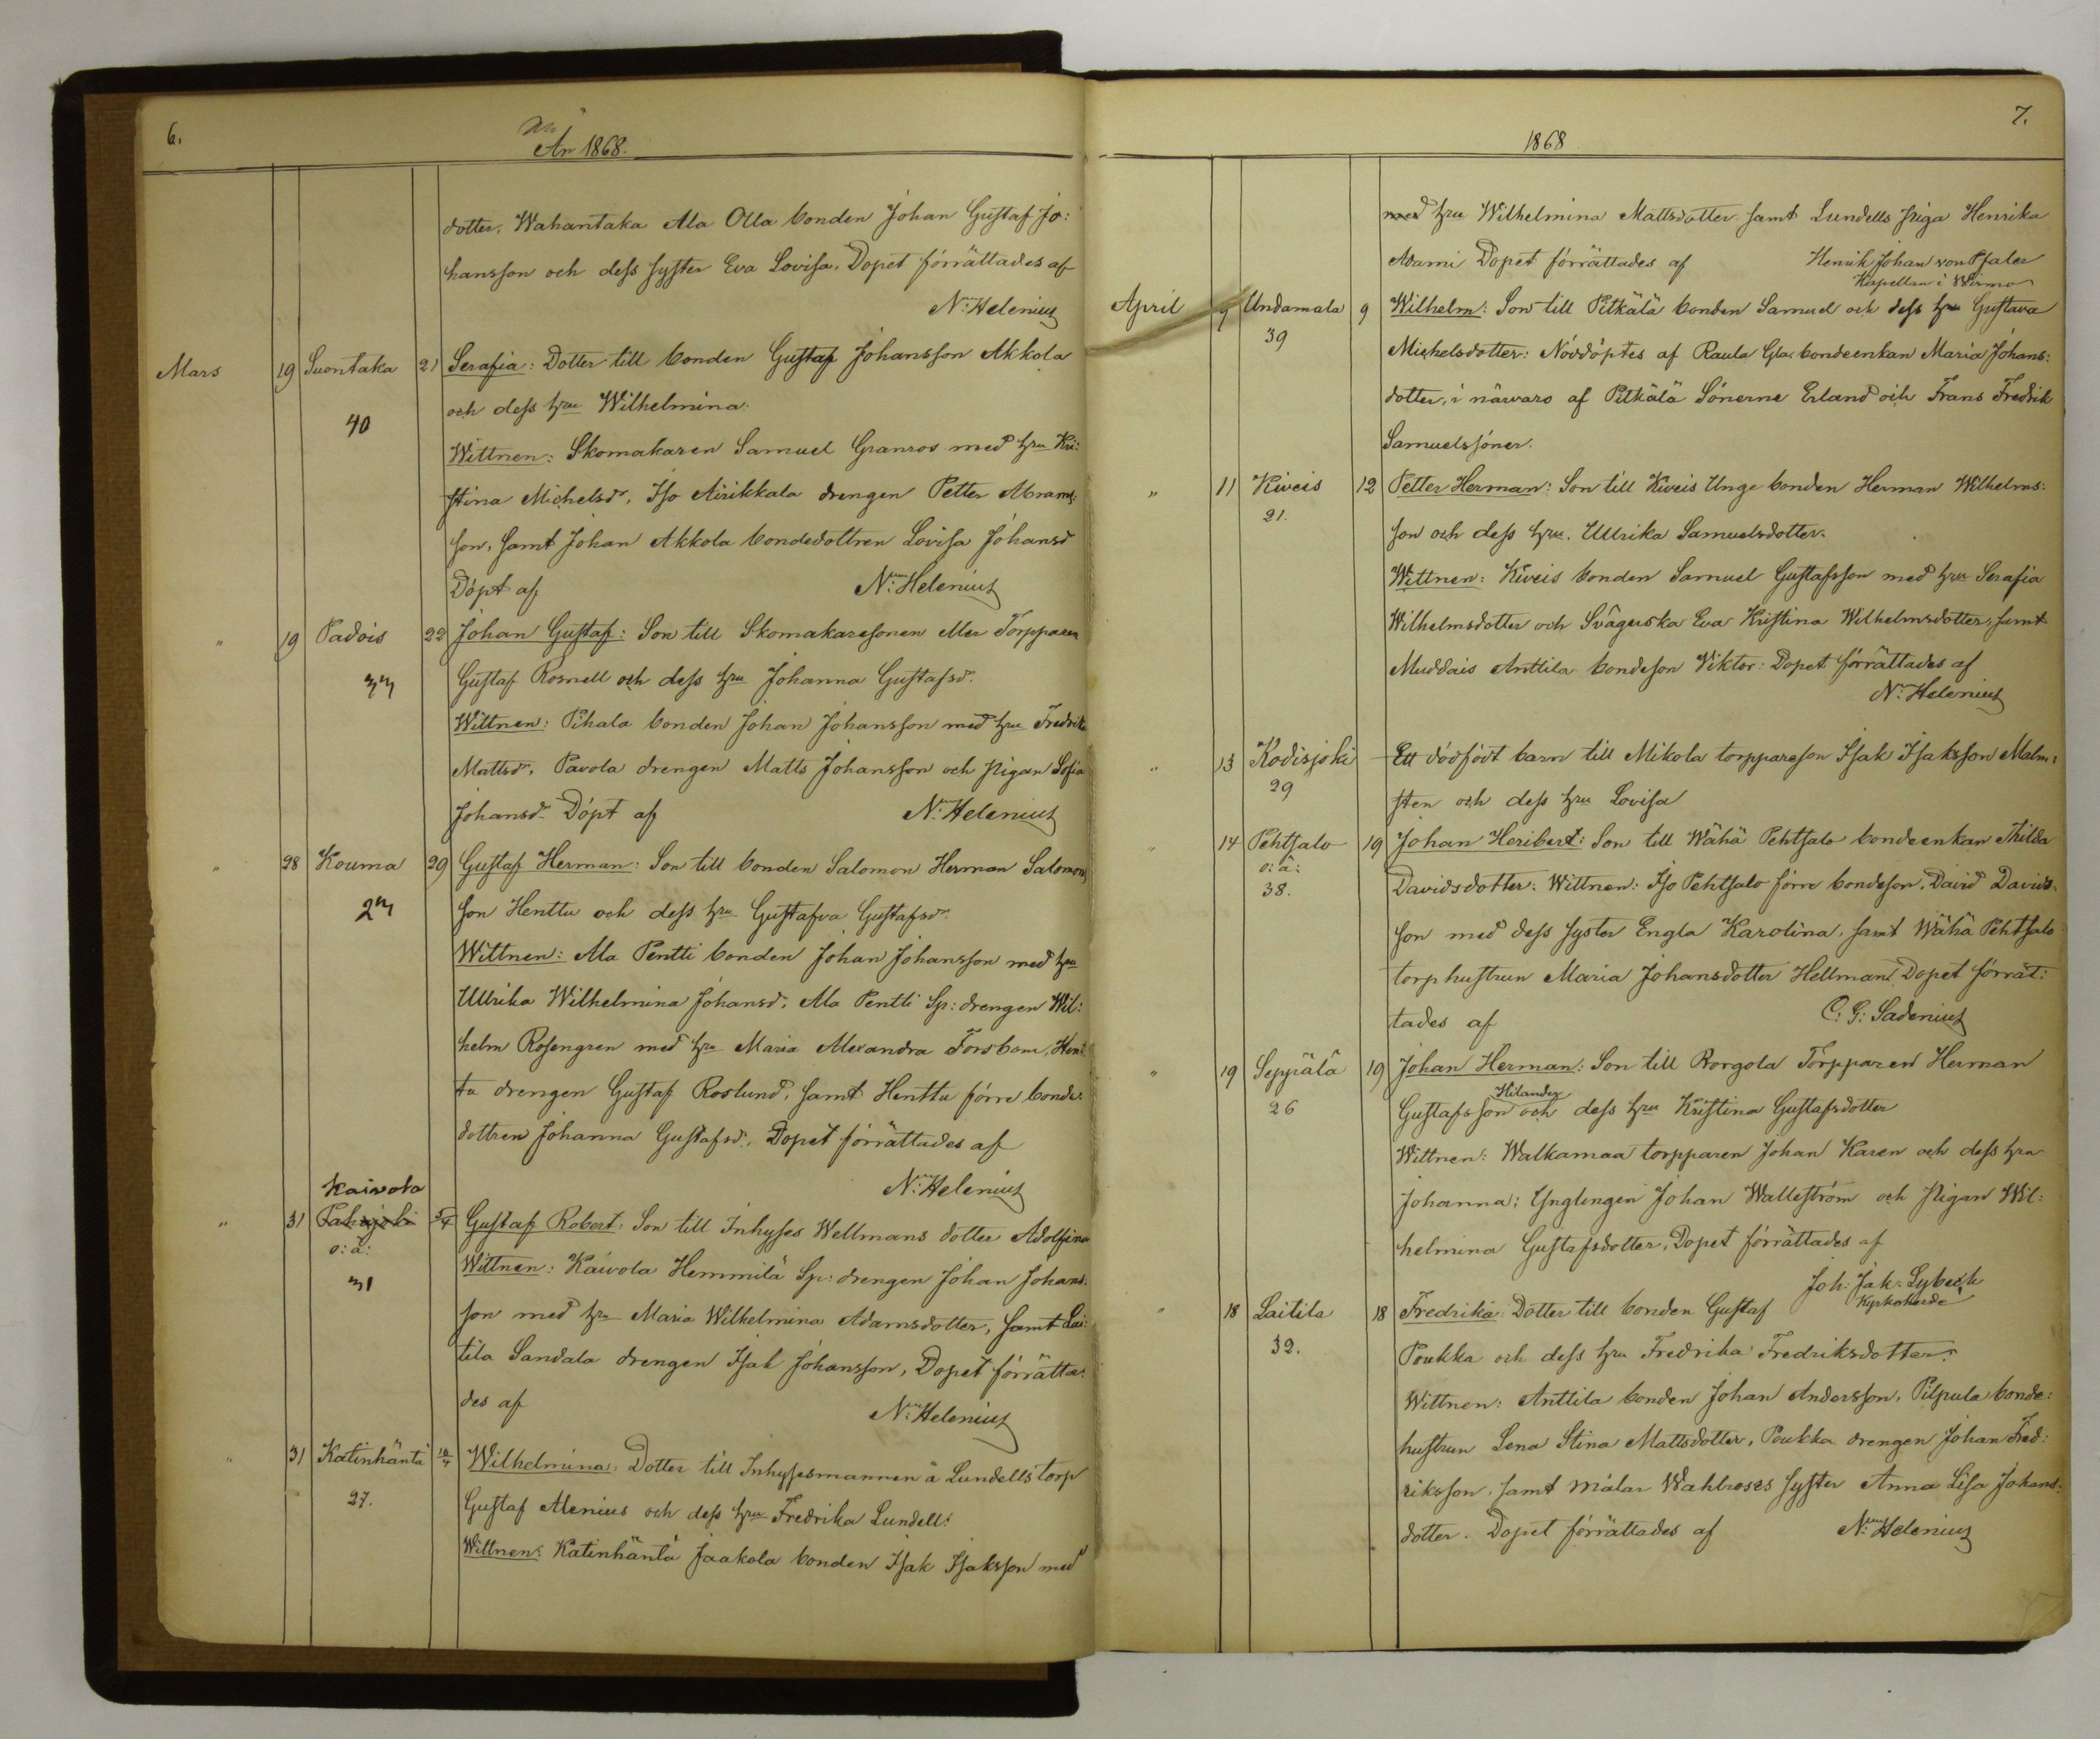 6.
År 1868.
dotter, Wahantaka Ala Olla bonden Johan Gustaf Jo:
hansson och dess syster Eva Lovisa. Dopet förrättades af
N: Helenius
Mars 19 Suontaka 21 Serafia: Dotter till bonden Gustaf Johansson Akkola
och dess hru Wilhelmina.
40
Wittnen: Skomakaren Samuel Granros med hru Kri:
stina Michelsdr, Iso Airikkala drengen Petter Abrams:
son, samt Johan Akkola bondedottren Lovisa Johansd
Döpt af N: Helenius
" 19 Padois 22 Johan Gustaf: Son till Skomakaresonen eller Torpparen
Gustaf Rosnell och dess hru Johanna Gustafsdr.
Wittnen: Pihala bonden Johan Johansson med hru Fredrika
Mattsdr, Pavola drengen Matts Johansson och Pigan Sofia
Johansdr Döpt af N: Helenius
" 28 Kouma 29 Gustaf Herman: Son till bonden Salomon Herman Salomons
son Henttu och dess hru Gustafva Gustafsdr.
Wittnen: Ala Pentti bonden Johan Johansson med hru
Ullrika Wilhelmina Johansd. Ala Pentti Sp: drengen Wil:
helm Rosengren med hru Maria Alexandra Forsbom, Hent:
tu drengen Gustaf Roslund, samt Henttu förre bonde:
dottren Johanna Gustafsd. Dopet förrättades af
N: Helenius
Kaivola
" 31 Palojoki 5/4 Gustaf Robert: Son till Inhyses Wellmans dotter Adolfina
o: ä:
31
Wittnen: Kaivola Hemmilä Sp: drengen Johan Johans:
son med hru Maria Wilhelmina Adamsdotter, samt Lai:
tila Sandala drengen Isak Johansson, Dopet förrätta:
des af N: Helenius
" 31 Katinhäntä 10/4 Wilhelmina: Dotter till Inhysesmannen å Lundells torp
27.
Gustaf Alenius och dess hru Fredrika Lundell.
Wittnen: Katinhäntä Jaakola bonden Isak Isaksson med
7.
1868
med hru Wilhelmina Mattsdotter samt Lundells piga Henrika
Adami Dopet förrättades af Henrik Johan von Pfaler
Kapellan i Wirmo
April 9 Undamala 9 Wilhelm: Son till Pitkälä bonden Samuel och dess hru Gustava
39
Michelsdotter: Nöddöptes af Raula Gla: bondeenkan Maria Johans:
dotter, i närvaro af Pitkälä Sönerne Erland och Frans Fredrik
Samuelssöner.
" 11 Kiveis 12 Petter Herman: Son till Kiveis Unge bonden Herman Wilhelms:
21.
son och dess hru. Ullrika Samuelsdotter.
Wittnen: Kiveis bonden Samuel Gustafsson med hru Serafia
Wilhelmsdotter och Svägerska Eva Kristina Wilhelmsdotter, samt
Muddais Anttila bondeson Viktor: Dopet förrättades af
N: Helenius
" 13 Kodisjoki Ett dödfödt barn till Mikola torppareson Isak Isaksson Malm:
29
sten och dess hru Lovisa
" 14 Pehtsalo 19 Johan Heribert: Son till Wähä Pehtsalo bondeenkan Thilda
o: ä:
38.
Davidsdotter: Wittnen: Iso Pehtsalo förre bondeson, David Davids:
son med dess syster Engla Karolina, samt Wähä Pehtsalo
torphustrun Maria Johansdotter Hellman. Dopet förrät:
tades af C: G: Sadenius
" 19 Seppälä 19 Johan Herman: Son till Rorgola Torpparen Herman
26
Hilander
Gustafsson och dess hru Kristina Gustafsdotter
Wittnen: Walkamaa torpparen Johan Karen och dess hru
Johanna; Ynglingen Johan Walleström och Pigan Wil:
helmina Gustafsdotter, Dopet förrättades af
Joh: Jak: Lybeck
Kyrkoherde
" 18 Laitila 18 Fredrika: Dotter till bonden Gustaf
32.
Poukka och dess hru Fredrika Fredriksdotter.
Wittnen: Anttila bonden Johan Andersson, Pilpula bonde:
hustrun Lena Stina Mattsdotter, Poukka drengen Johan Fred:
riksson, samt målar Wahlroses syster Anna Lisa Johans:
dotter. Dopet förrättades af N: Helenius